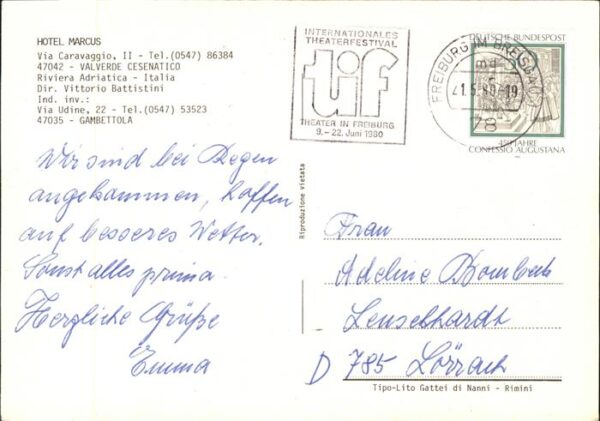 HOTEL MARCUS
Via Caravaggio, II - Tel.(0547) 86384
47042 - VALVERDE CESENATICO
Riviera Adriatica - Italia
Dir. Vittorio Battistini
Ind. inv.:
Via Udine, 22 - Tel.(0547) 53523
47035 - GAMBETTOLA
INTERNATIONALES
THEATERFESTIVAL
tif
THEATER IN FREIBURG
9.-22. Juni 1980
FREIBURG IM BREISGAU
-19
78
DEUTSCHE BUNDESPOST
450 JAHRE
CONFESSIO AUGUSTANA
Wir sind bei Regen
angekommen, hoffen
auf besseres Wetter.
Sonst alles prima.
Herzliche Grüße
Emma
Riproduzione vietata
Frau
Adeline
D 785 Lörrach
Tipo-Lito Gattei di Nanni - Rimini